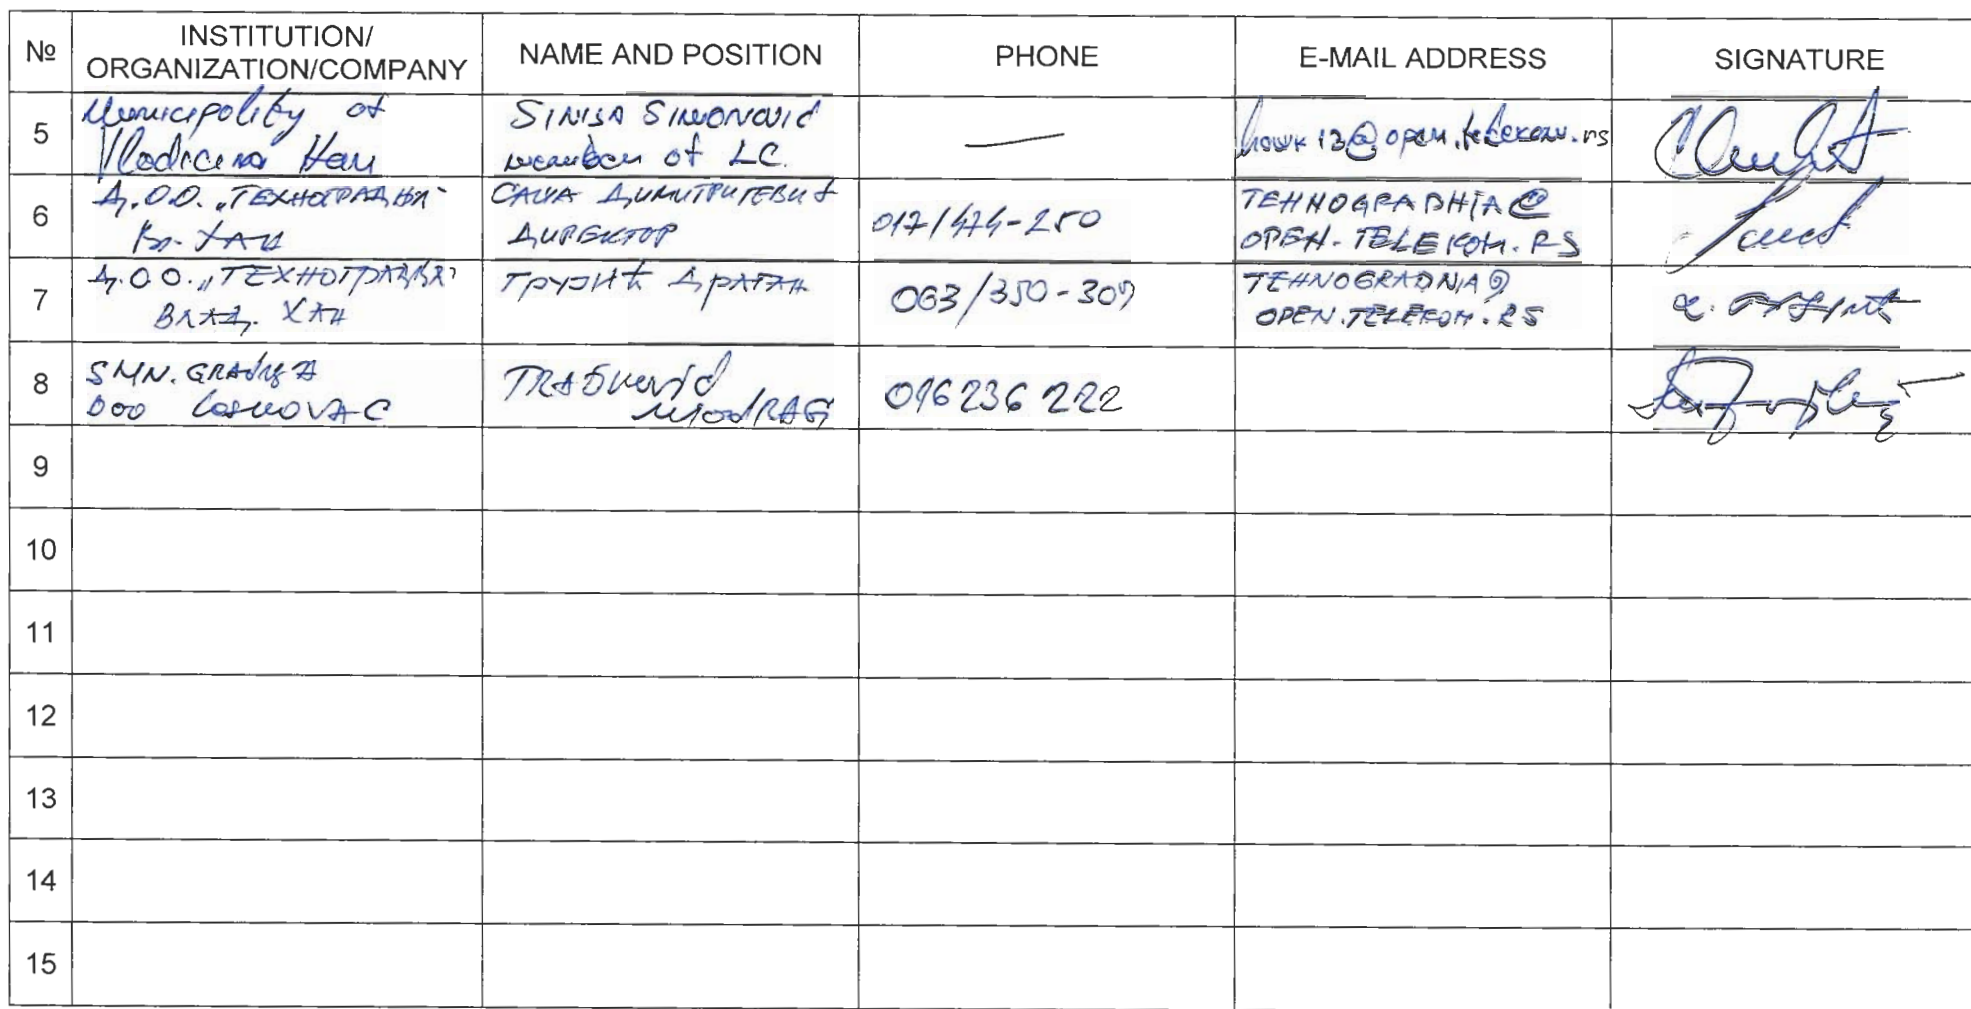 №
INSTITUTION/
ORGANIZATION/COMPANY
NAME AND POSITION
PHONE
E-MAIL ADDRESS
SIGNATURE
5
Municipality of
Vladicina Han
SINISA SIMONOVIC
member of LC.
—
hawk13@open.telekom.rs
6
Д.О.О. „ТЕХНОГРАДЊА"
Вл. ХАН
САША ДИМИТРИЈЕВИЋ
ДИРЕКТОР
017/474-250
TEHNOGRADNJA@
OPEN.TELEKOM.RS
7
Д.О.О. „ТЕХНОГРАДЊА"
ВЛАД. ХАН
ДРАГАН
063/350-309
TEHNOGRADNJA@
OPEN.TELEKOM.RS
8
SMN. GRADNJA
DOO LESKOVAC
MIODRAG
016 236 222
9
10
11
12
13
14
15